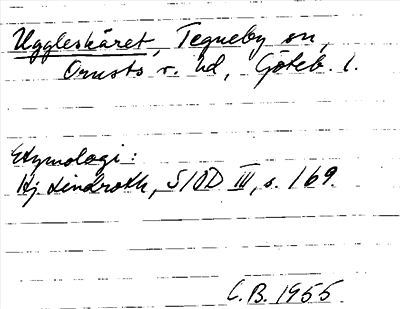 Uggleskäret, Tegneby sn,
Orusts v. hd, Göteb. l.
Etymologi:
Hj Lindroth, SIOD III, s. 169.
C.B. 1955